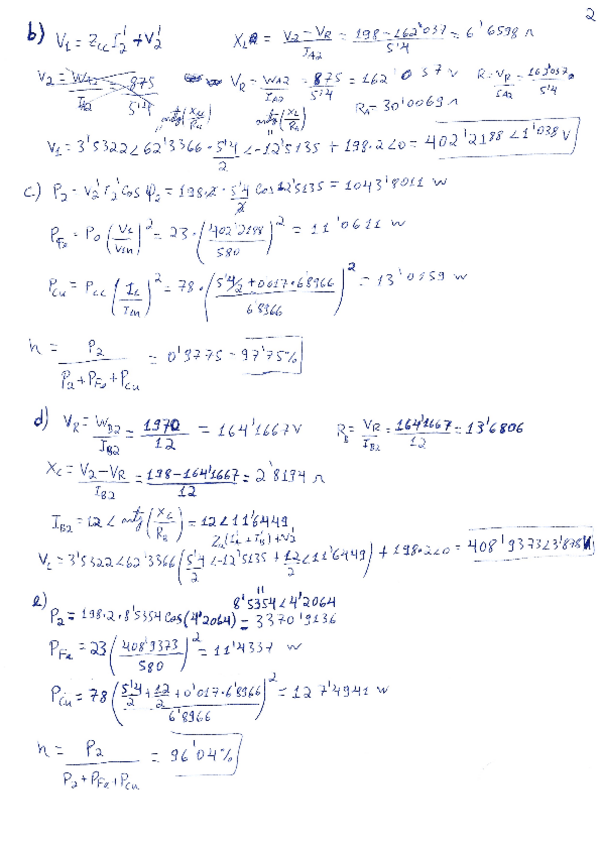 2
b) V₁ = Zcc I₂' + V₂'    X_L = (V₂ - V_R)/I_A2 = (198 - 162'037)/5'4 = 6'6598 Ω
V₂ = W_A2/I_A2 = 875/5'4    V_R = W_A2/I_A2 = 875/5'4 = 162'037 V    R = V_R/I_A2 = 162'037/5'4
R_A = 30'0069 Ω
V₁ = 3'5322 < 62'3366 · 5'4/2 < -12'5135 + 198·2 < 0 = 402'2188 < 1'038 V
c.) P₂ = V₂' I₂' cos φ₂ = 198·2 · 5'4/2 cos 12'5135 = 1043'8011 W
P_Fe = P₀ (V₁/V₁n)² = 23 · (402'2188/580)² = 11'0611 W
P_Cu = Pcc (I₁/I₁n)² = 78 · ((5'4/2 + 0'017·6'8966)/6'8966)² = 13'0559 W
η = P₂/(P₂ + P_Fe + P_Cu) = 0'9775 - 97'75%
d) V_R = W_B2/I_B2 = 1970/12 = 164'1667 V    R_B = V_R/I_B2 = 164'1667/12 = 13'6806
X_C = (V₂ - V_R)/I_B2 = (198 - 164'1667)/12 = 2'8194 Ω
I_B2 = 12 < artg (X_C/R_B) = 12 < 11'6449
Zcc (I_A' + I_B') + V₂'
V₁ = 3'5322 < 62'3366 (5'4/2 < -12'5135 + 12/2 < 11'6449) + 198·2 < 0 = 408'9373 < 3'878 V
8'5354 < 4'2064
e) P₂ = 198·2·8'5354 cos (4'2064) = 3370'9136
P_Fe = 23 (408'9373/580)² = 11'4337 W
P_Cu = 78 ((5'4/2 + 12/2 + 0'017·6'8966)/6'8966)² = 127'4941 W
η = P₂/(P₂ + P_Fe + P_Cu) = 96'04%